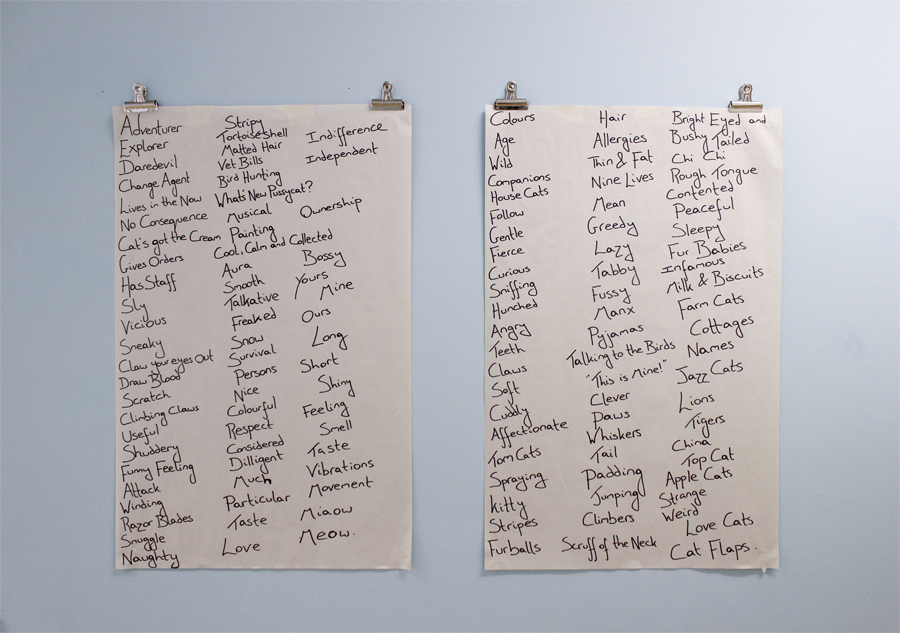 Adventurer
Explorer
Daredevil
Change Agent
Lives in the Now
No Consequence
Cat's got the Cream
Gives Orders
Has Staff
Sly
Vicious
Sneaky
Claw your eyes Out
Draw Blood
Scratch
Climbing Claws
Useful
Shuddery
Funny Feeling
Attack
Winding
Razor Blades
Snuggle
Naughty
Stripy
Tortoiseshell
Matted Hair
Vet Bills
Bird Hunting
Whats New Pussycat?
Musical
Painting
Cool, Calm and Collected
Aura
Smooth
Talkative
Freaked
Snow
Survival
Persons
Nice
Colourful
Respect
Considered
Dilligent
Much
Particular
Taste
Love
Indifference
Independent
Ownership
Bossy
Yours
Mine
Ours
Long
Short
Shiny
Feeling
Smell
Taste
Vibrations
Movement
Miaow
Meow.
Colours
Age
Wild
Companions
House Cats
Follow
Gentle
Fierce
Curious
Sniffing
Hunched
Angry
Teeth
Claws
Soft
Cuddly
Affectionate
Tom Cats
Spraying
Kitty
Stripes
Furballs
Hair
Allergies
Thin & Fat
Nine Lives
Mean
Greedy
Lazy
Tabby
Fussy
Manx
Pyjamas
Talking to the Birds
"This is Mine!"
Clever
Paws
Whiskers
Tail
Padding
Jumping
Climbers
Scruff of the Neck
Bright Eyed and
Bushy Tailed
Chi Chi
Rough Tongue
Contented
Peaceful
Sleepy
Fur Babies
Infamous
Milk & Biscuits
Farm Cats
Cottages
Names
Jazz Cats
Lions
Tigers
China
Top Cat
Apple Cats
Strange
Weird
Love Cats
Cat Flaps.